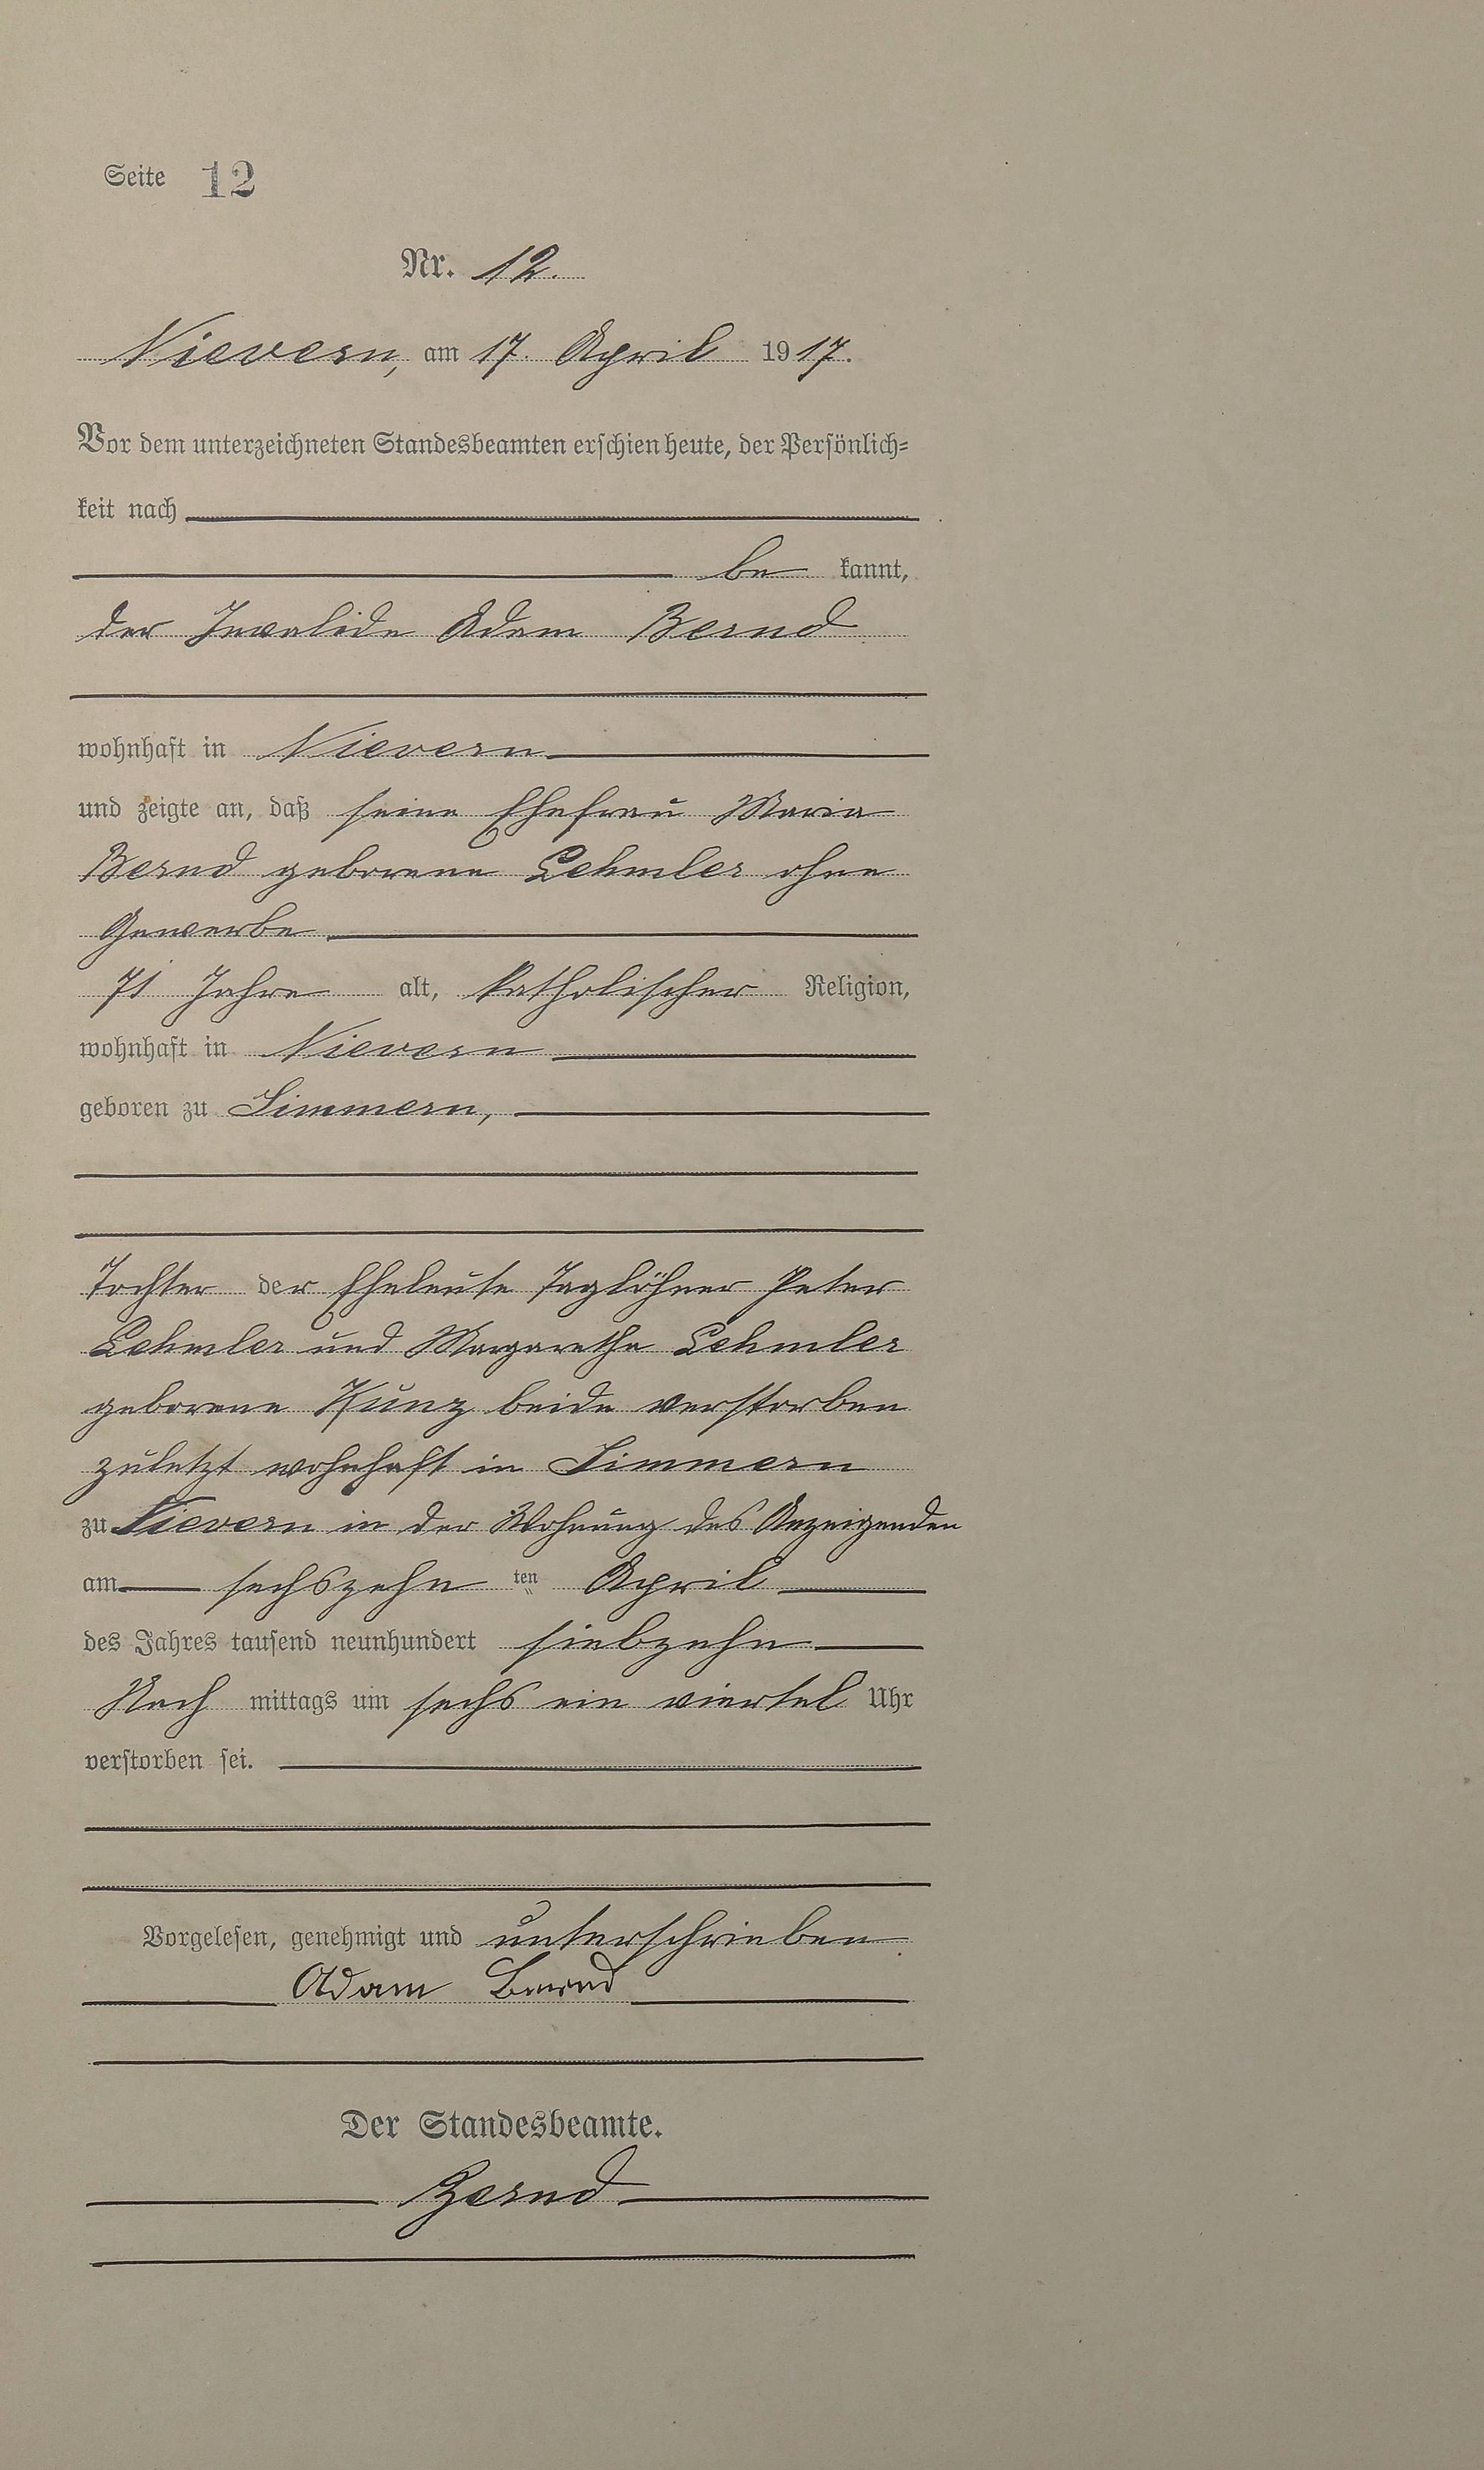 Seite 12
Nr. 12.
Nievern, am 17. April 1917.
Vor dem unterzeichneten Standesbeamten erschien heute, der Persönlich=
keit nach
be kannt,
der Invalide Adam Bernd
wohnhaft in Nievern
und zeigte an, daß seine Ehefrau Maria
Bernd geborene Lehmler ohne
Gewerbe
71 Jahre alt, katholischer Religion,
wohnhaft in Nievern
geboren zu Simmern,
Tochter der Eheleute Taglöhner Peter
Lehmler und Margaretha Lehmler
geborene Kunz beide verstorben
zuletzt wohnhaft in Simmern
zu Nievern in der Wohnung des Anzeigenden
am sechszehn ten April
des Jahres tausend neunhundert siebzehn
Nach mittags um sechs ein viertel Uhr
verstorben sei.
Vorgelesen, genehmigt und unterschrieben
Adam Bernd
Der Standesbeamte.
Bernd